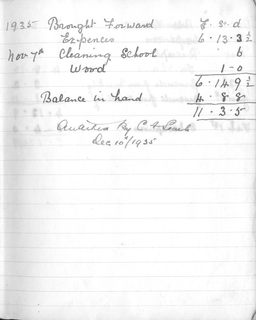 1935 Brought Forward £ . s . d
Expences 6 . 13 . 3 ½
Nov 7th Cleaning School . 6
Wood 1 - 0
6 . 14 9 ½
Balance in hand 4 . 8 8
11 . 3 . 5
Audited By C A
Dec 10th/1935